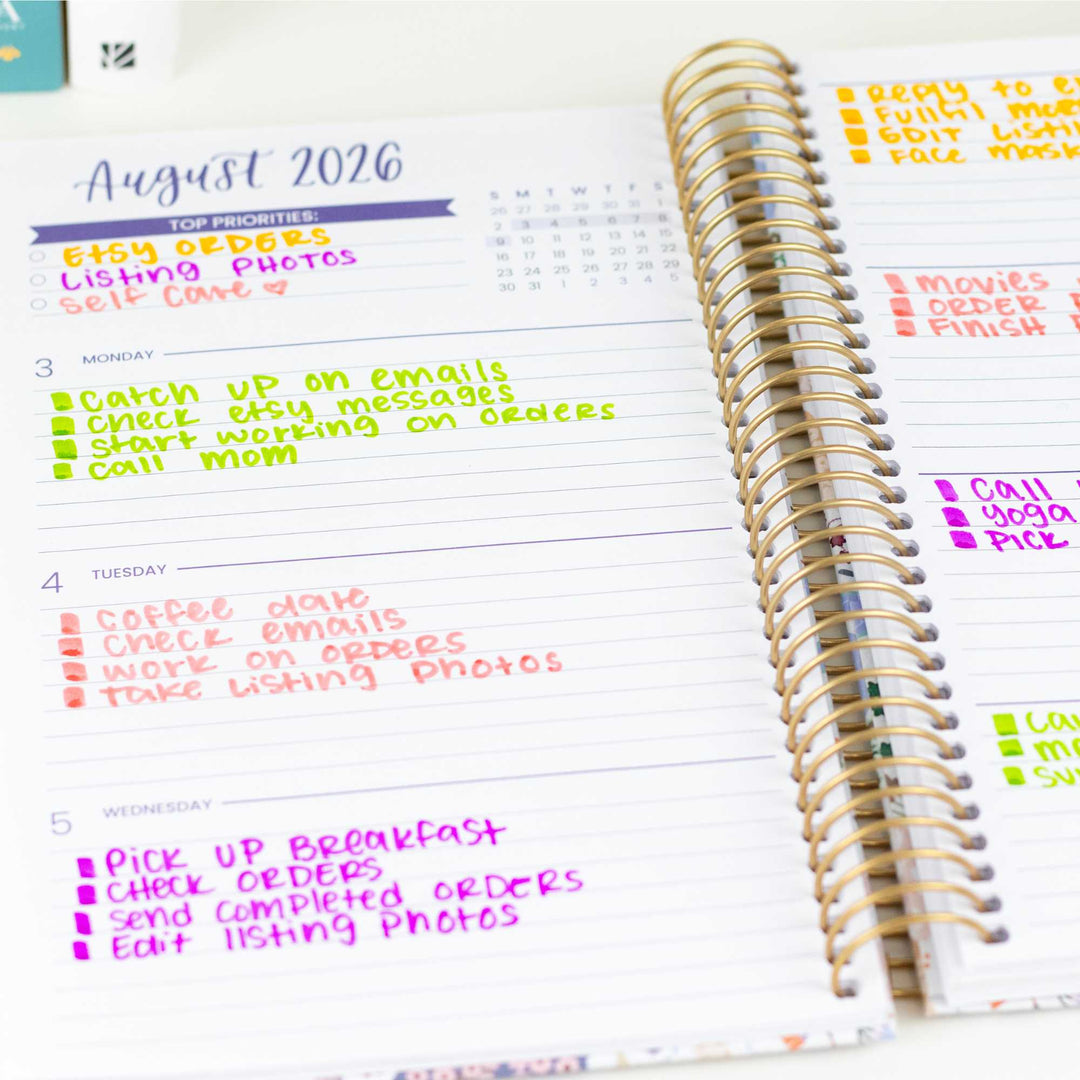 August 2026
TOP PRIORITIES:
Etsy ORDERS
Listing PHOTOS
Self Care
S M T W T F S
26 27 28 29 30 31 1
2 3 4 5 6 7 8
9 10 11 12 13 14 15
16 17 18 19 20 21 22
23 24 25 26 27 28 29
30 31 1 2 3 4 5
3 MONDAY
catch up on emails
check etsy messages
start working on orders
call mom
4 TUESDAY
coffee date
check emails
work on orders
take listing photos
5 WEDNESDAY
Pick up Breakfast
check ORDERS
send completed ORDERS
Edit listing photos
Reply to
Fulfill
Edit
Face mask
Movies
ORDER
FINISH
Call
yoga
Pick